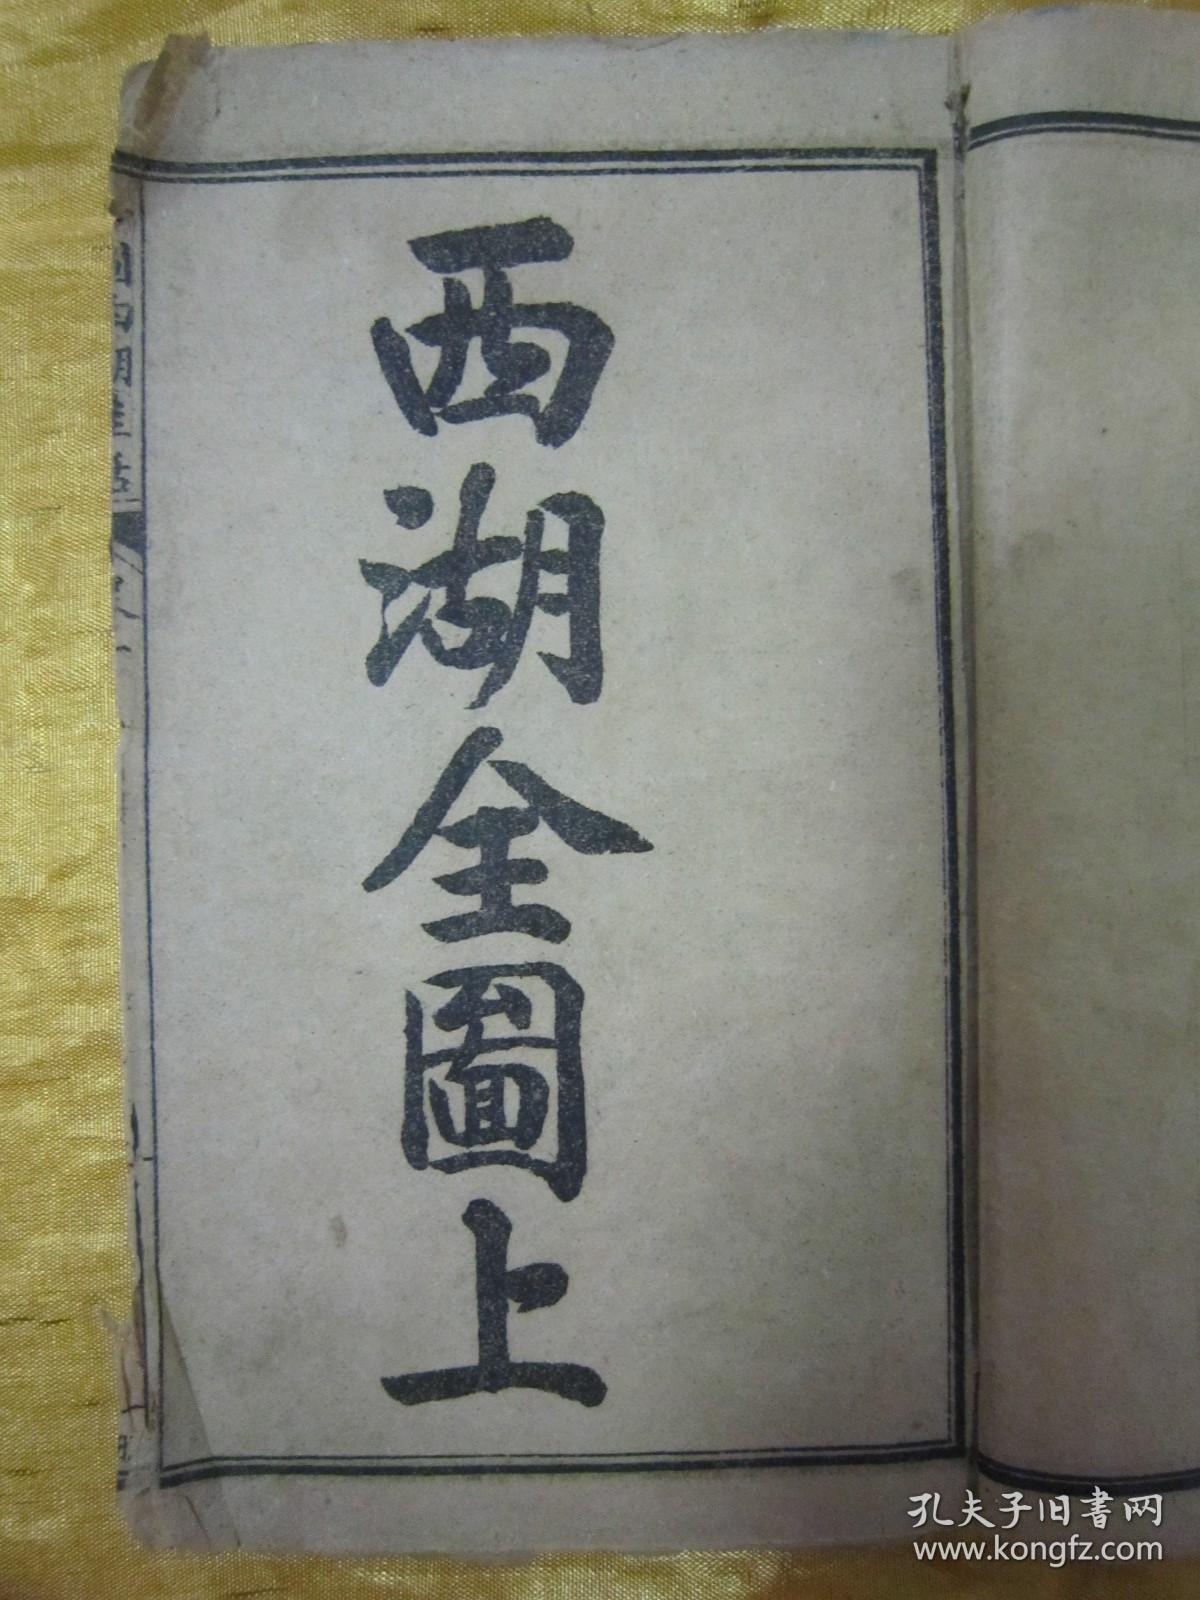 西湖全圖上
孔夫子旧書网
www.kongfz.com